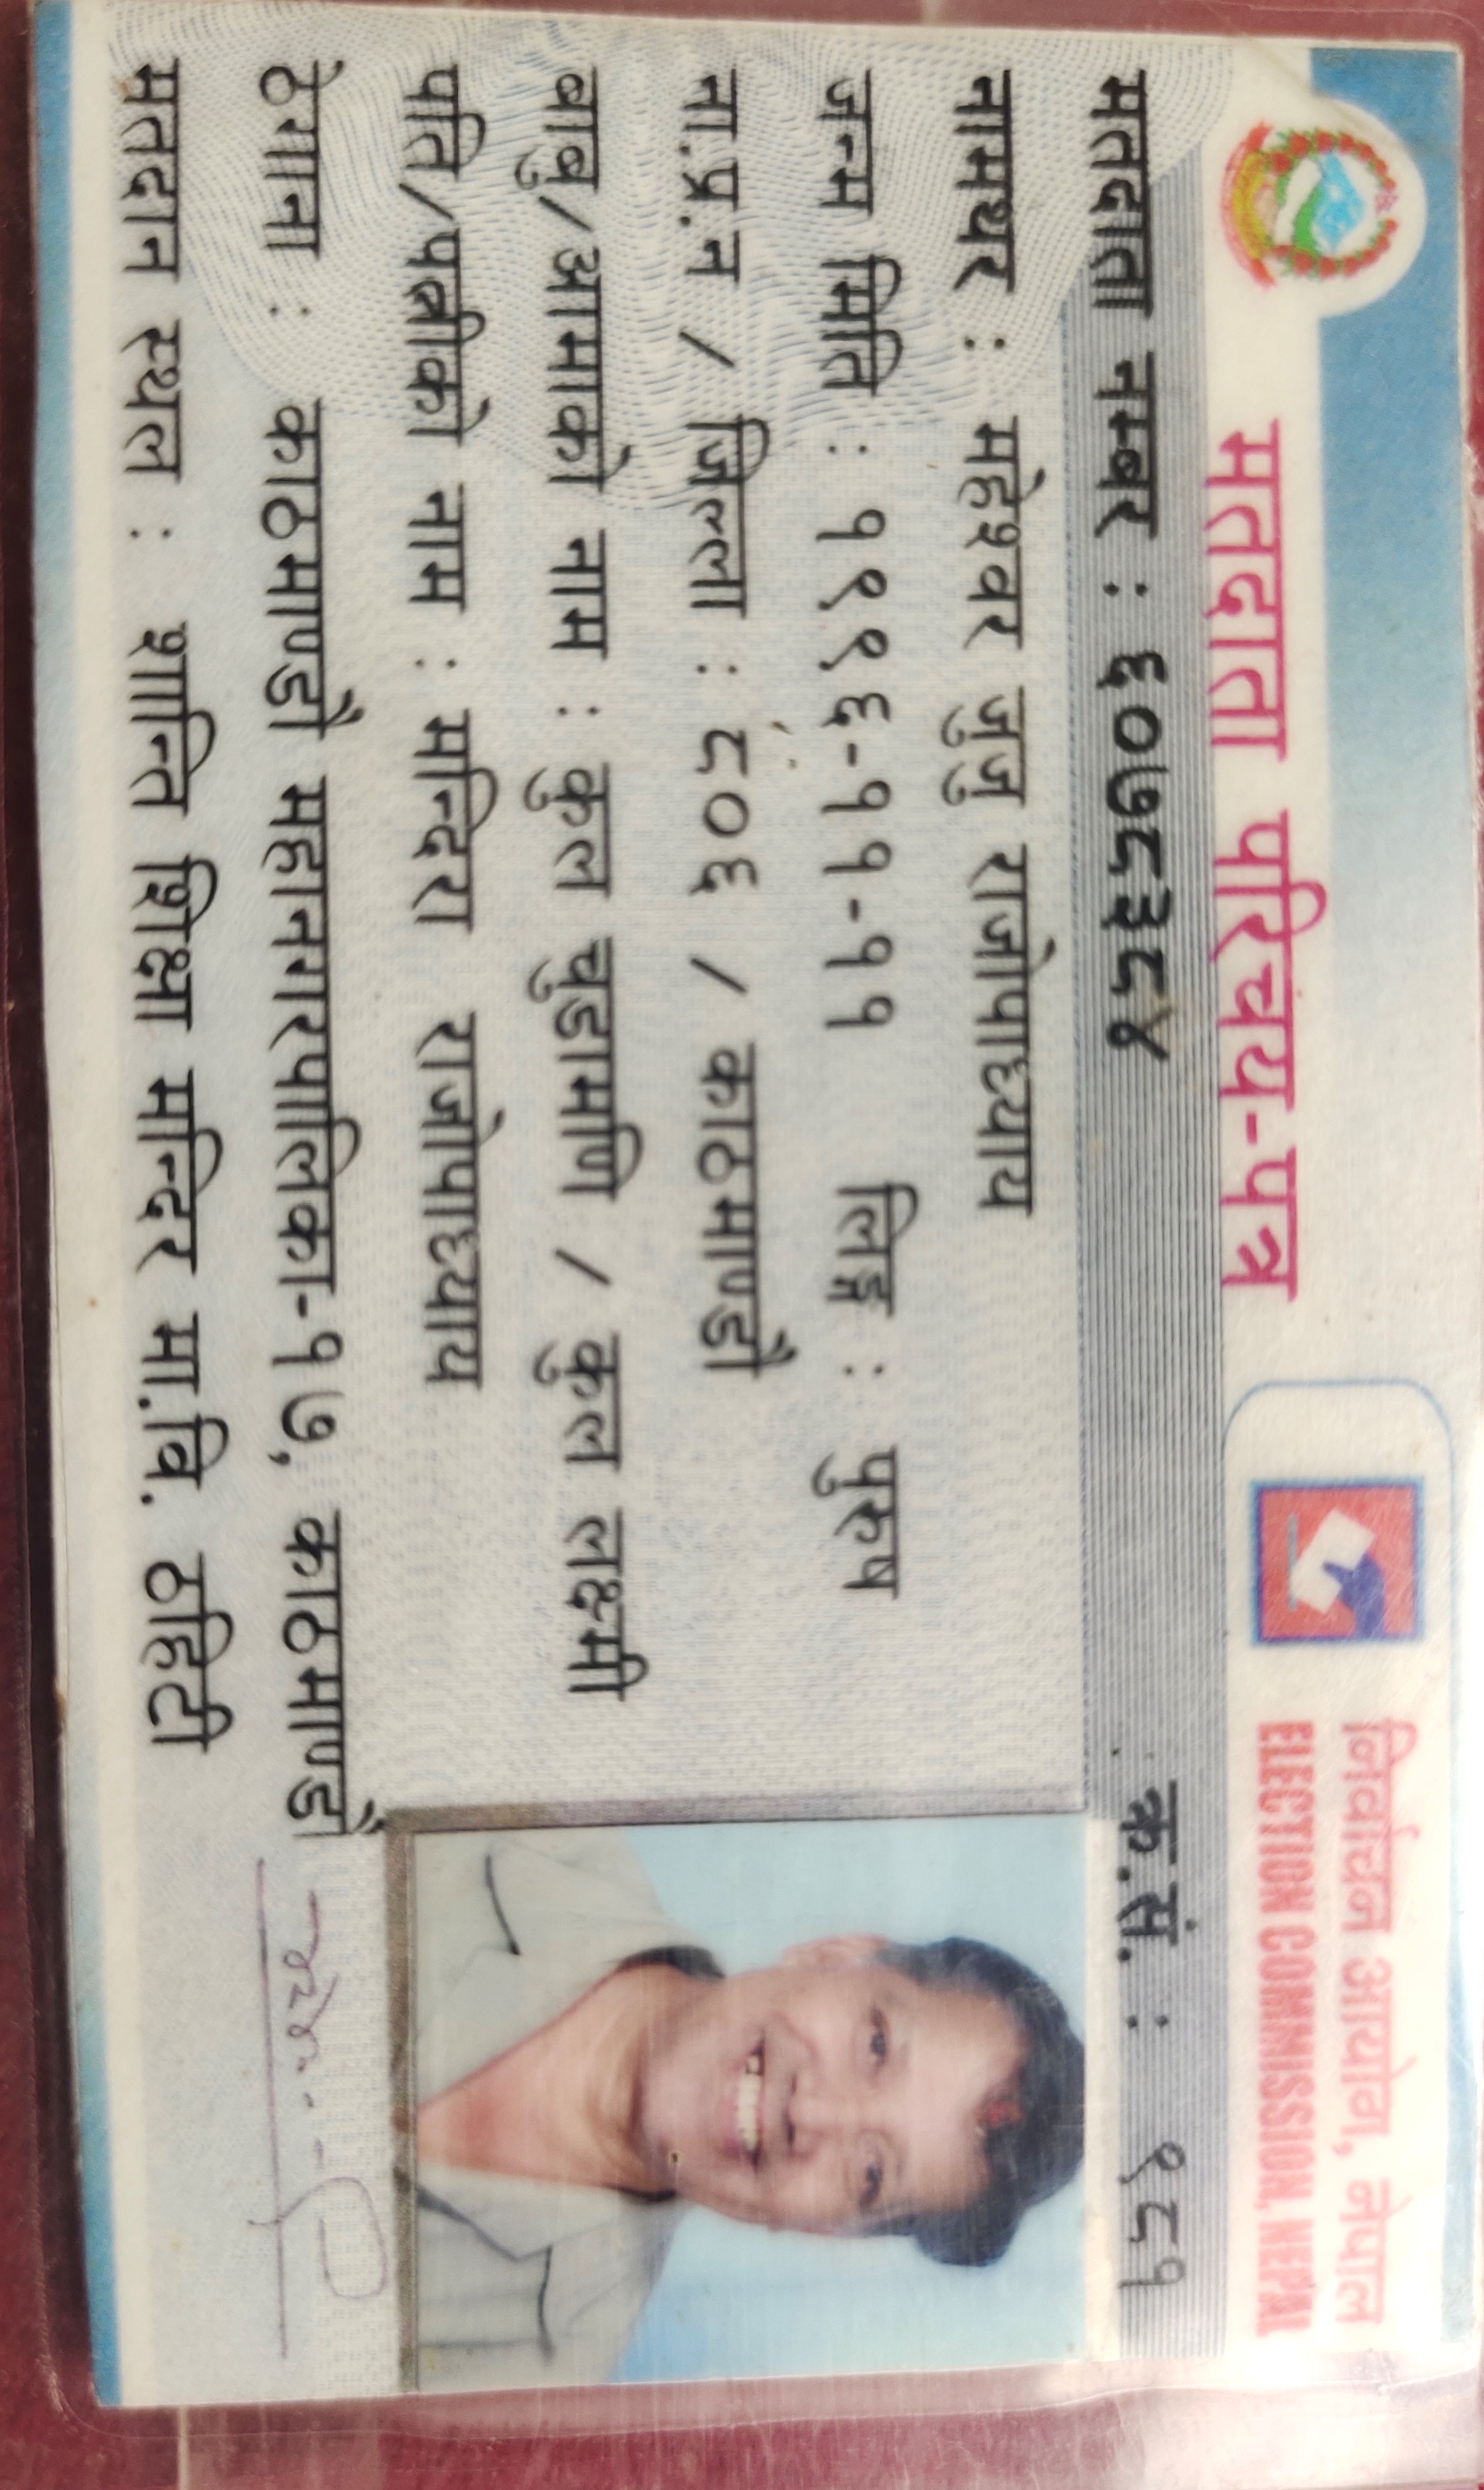 मतदाता परिचय-पत्र
निर्वाचन आयोग, नेपाल
ELECTION COMMISSION, NEPAL
मतदाता नम्बर : ६०७८३८४
क्र.सं. : ९८१
नामथर : महेश्वर जुजु राजोपाध्याय
जन्म मिति : १९९६-११-११ लिङ्ग : पुरुष
ना.प्र.न / जिल्ला : ८०६ / काठमाण्डौ
बाबु/आमाको नाम : कुल चुडामणि / कुल लक्ष्मी
पति/पत्नीको नाम : मन्दिरा राजोपाध्याय
ठेगाना : काठमाण्डौ महानगरपालिका-१७, काठमाण्डौ
मतदान स्थल : शान्ति शिक्षा मन्दिर मा.वि. ठहिटी